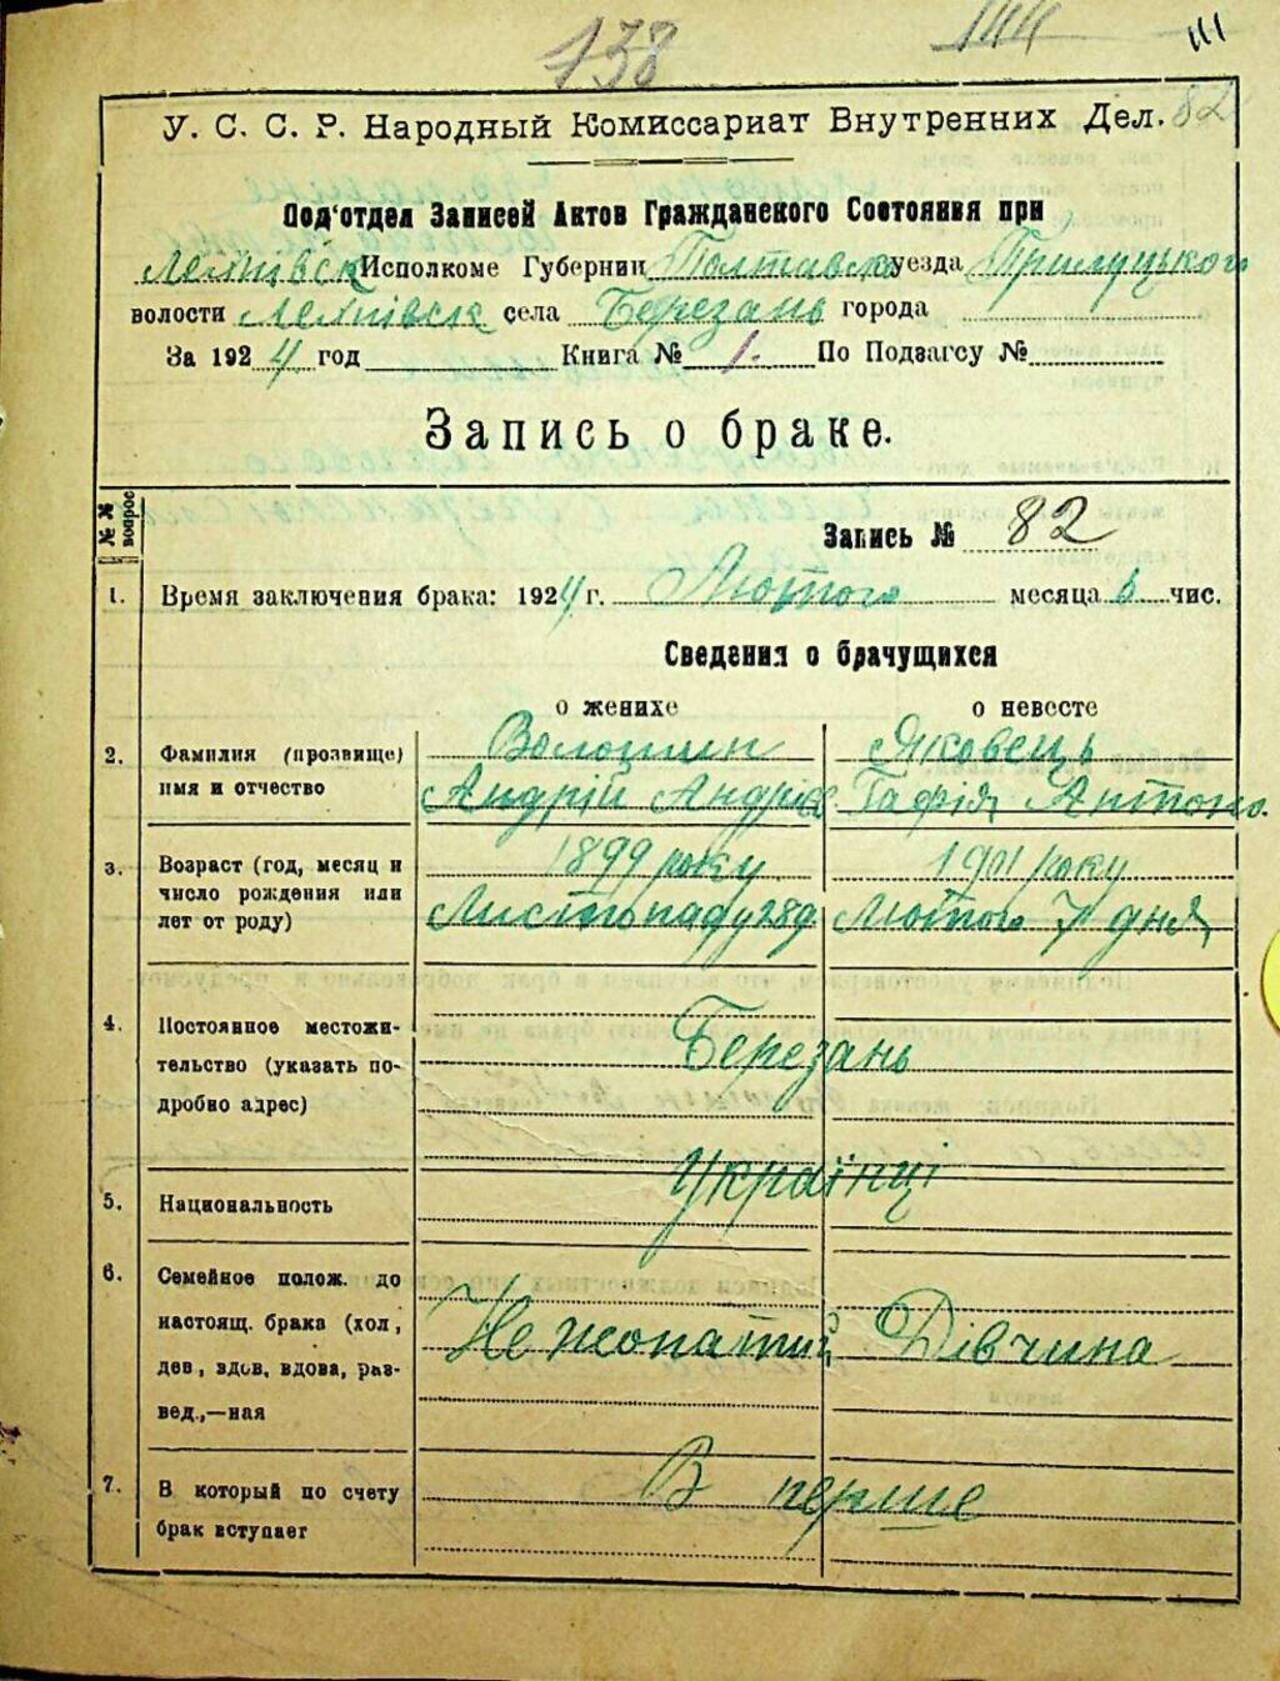 138 144 111
У. С. С. Р. Народный Комиссариат Внутренних Дел. 82
Под'отдел Записей Актов Гражданского Состояния при
Исполкоме Губернии Полтавск уезда Прилуцького
волости села Березань города
За 1924 год Книга № 1. По Подзагсу №
Запись о браке.
№ № вопрос
Запись № 82
1. Время заключения брака: 1924 г. Лютого месяца чис.
Сведения о брачущихся
о женихе о невесте
2. Фамилия (прозвище) Волошин Яковець
имя и отчество Андрій Андрієв Гафія Антоно.
3. Возраст (год, месяц и 1899 року 1901 року
число рождения или
лет от роду) Листопаду 28 д. Лютого 7 дня
4. Постоянное местожи-
тельство (указать по- Березань
дробно адрес)
Українці
5. Национальность
6. Семейное полож. до
настоящ. брака (хол, Не жонатий Дівчина
дев, вдов, вдова, раз-
вед.,—ная
7. В который по счету В перше
брак вступает